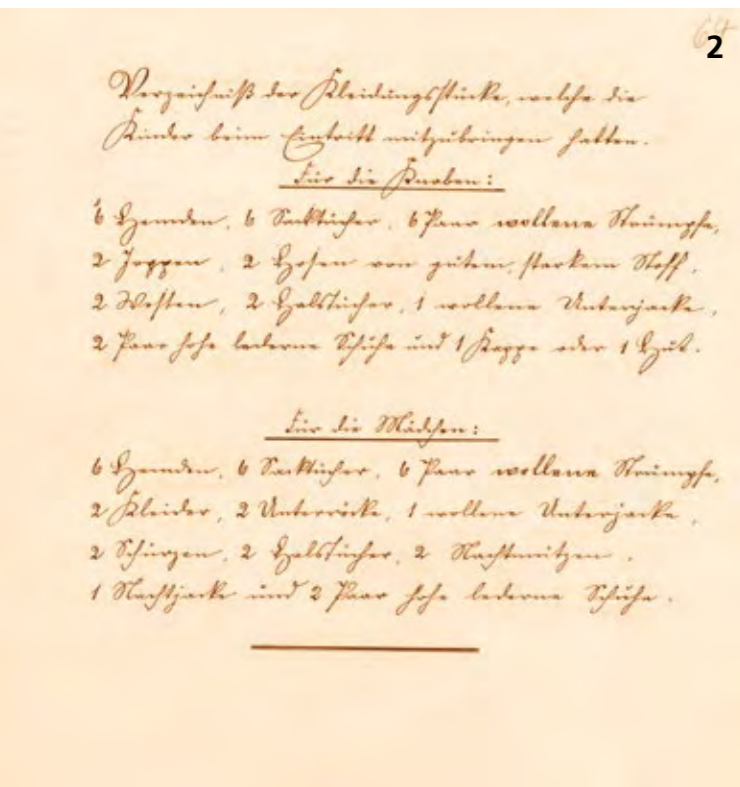 64
2
Verzeichniß der Kleidungsstücke, welche die
Kinder beim Eintritt mitzubringen hatten.
Für die Knaben:
6 Hemden, 6 Sacktücher, 6 Paar wollene Strümpfe,
2 Joppen, 2 Hosen von gutem, starkem Stoff,
2 Westen, 2 Halstücher, 1 wollene Unterjacke,
2 Paar hohe lederne Schuhe und 1 Kappe oder 1 Hut.
Für die Mädchen:
6 Hemden, 6 Sacktücher, 6 Paar wollene Strümpfe,
2 Kleider, 2 Unterröcke, 1 wollene Unterjacke,
2 Schürzen, 2 Halstücher, 2 Nachtmützen,
1 Nachtjacke und 2 Paar hohe lederne Schuhe.